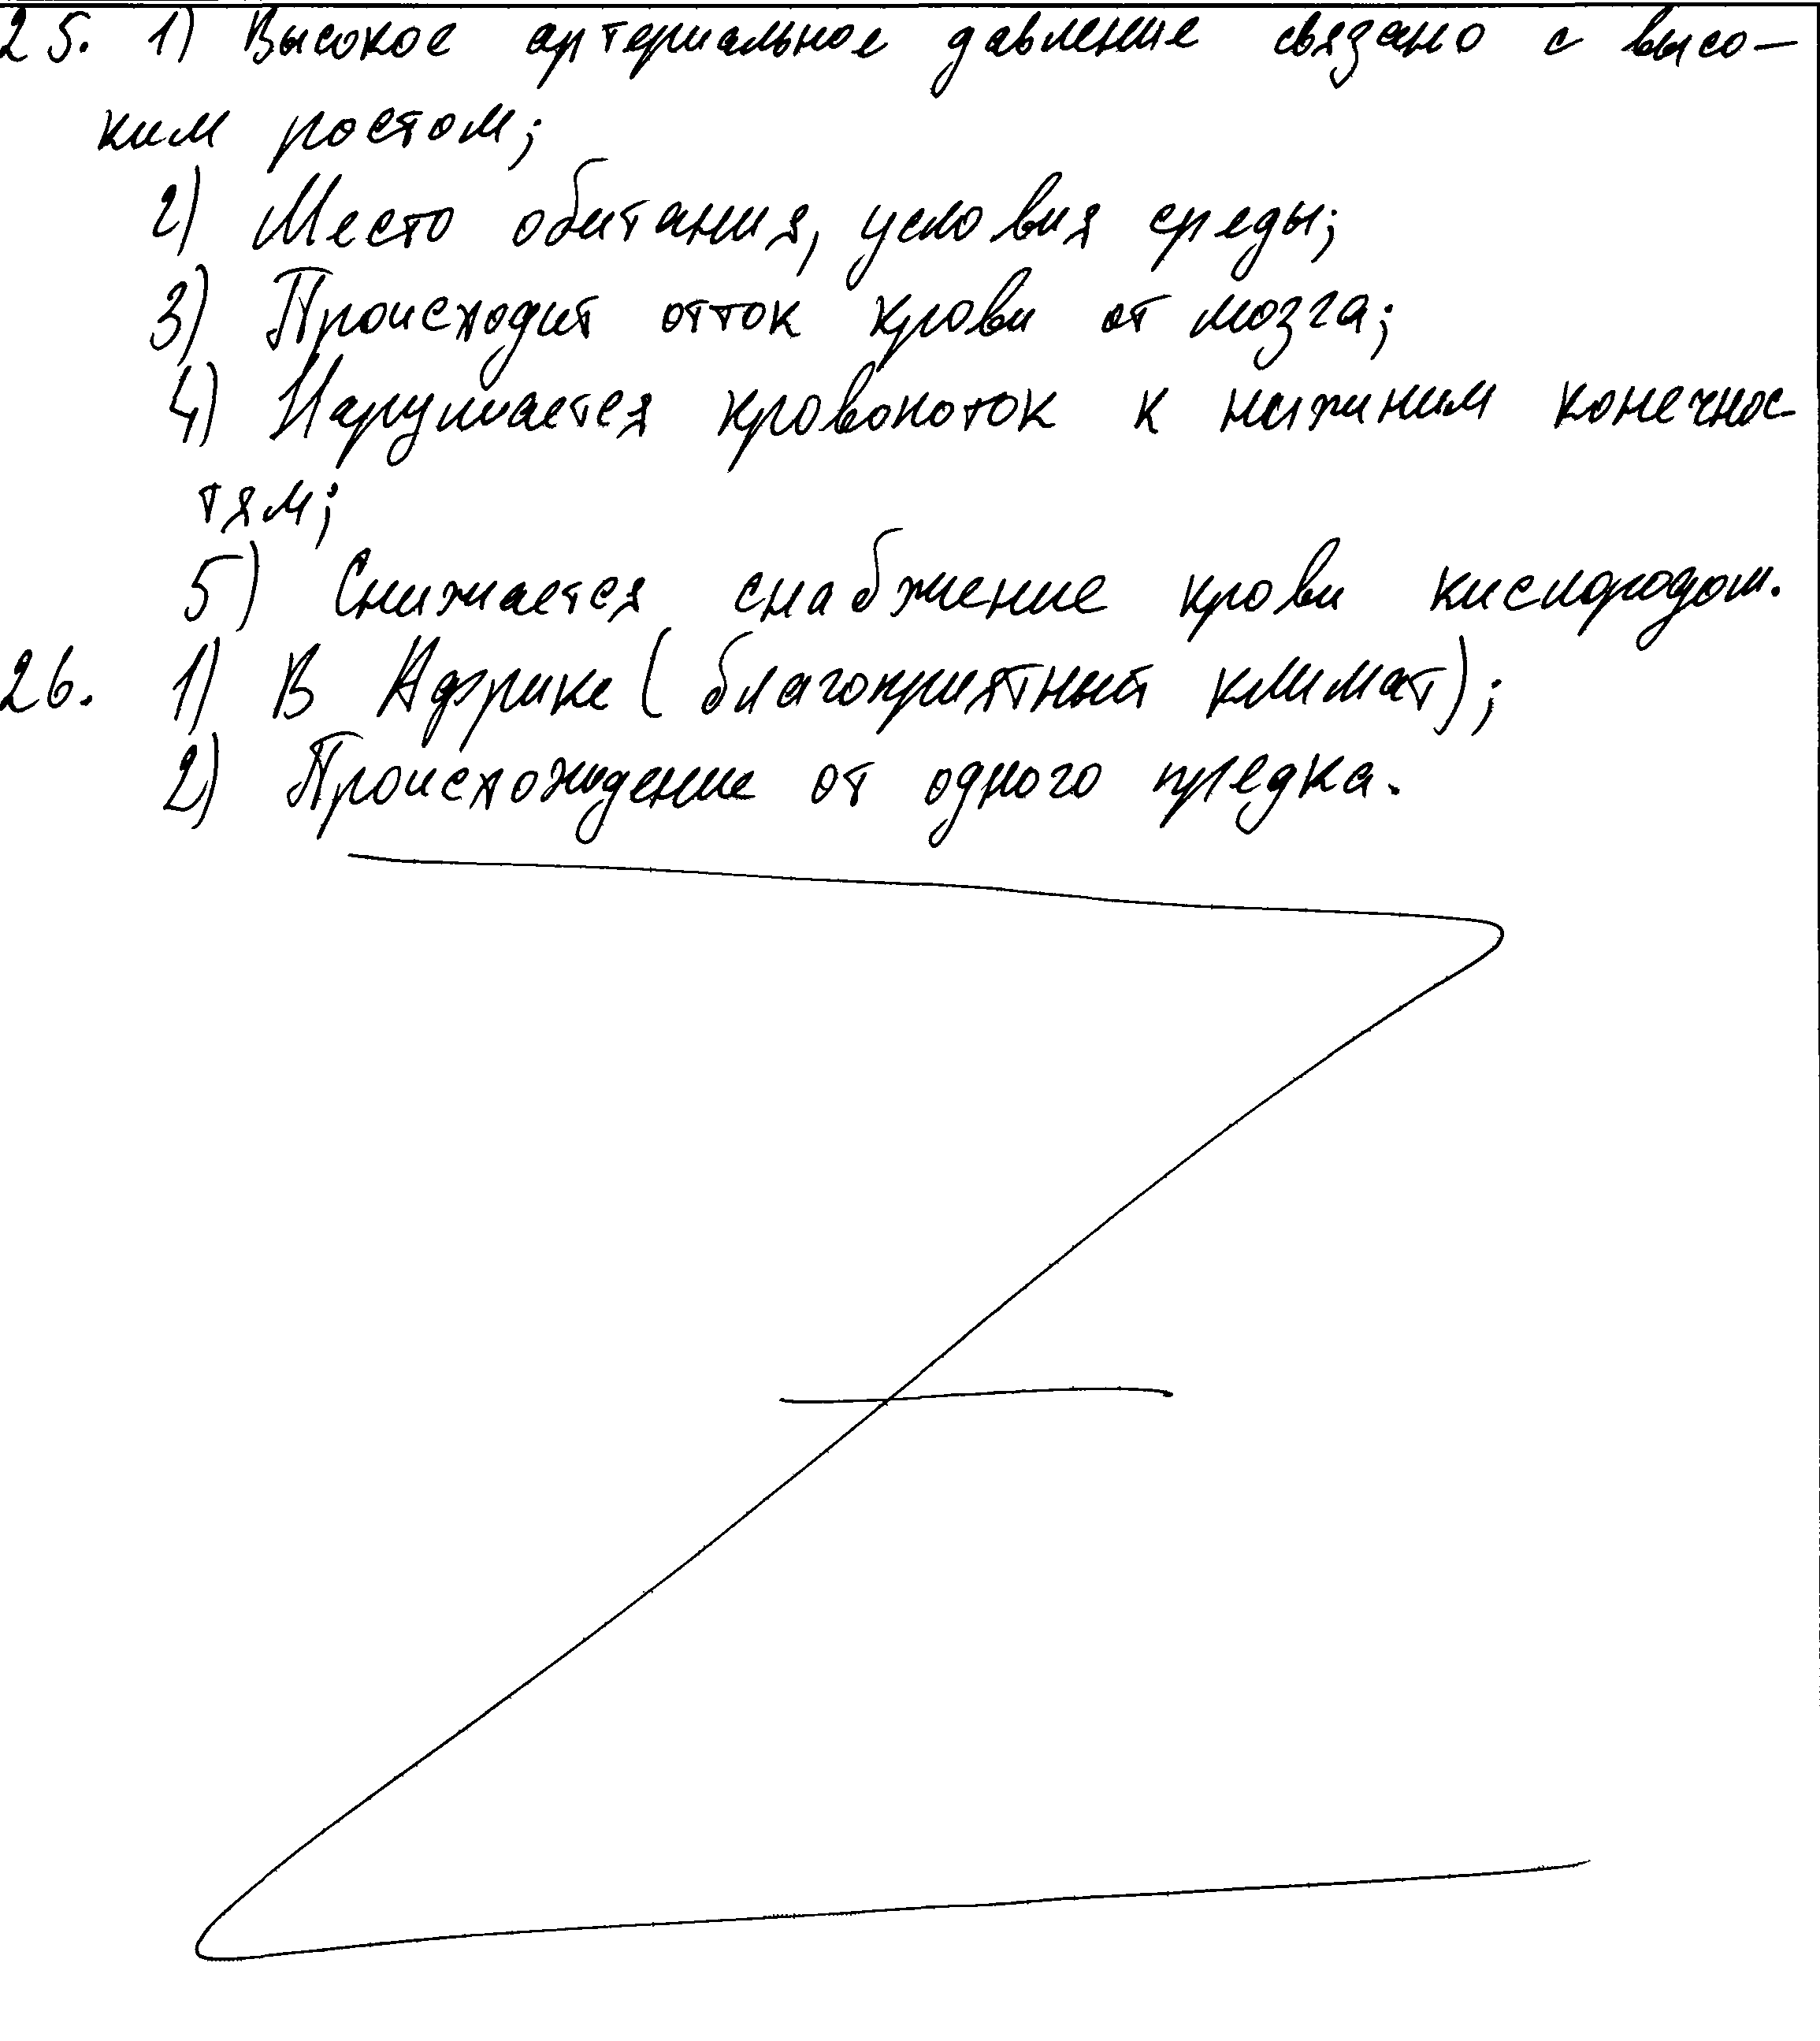 25. 1) Высокое артериальное давление связано с высо-
ким ростом;
2) Место обитания, условия среды;
3) Происходит отток крови от мозга;
4) Нарушается кровоноток к нижиним конечнос-
тям;
5) Снижается снабжение крови кислородом.
26. 1) В Африке (благоприятный климат);
2) Происхождение от одного предка.